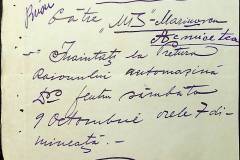 Către "MTS" - Marinescu
- Înaintați la Pretura
Raionului automașină
pentru sâmbăta
9 Octombrie orele 7 di-
mineață. -